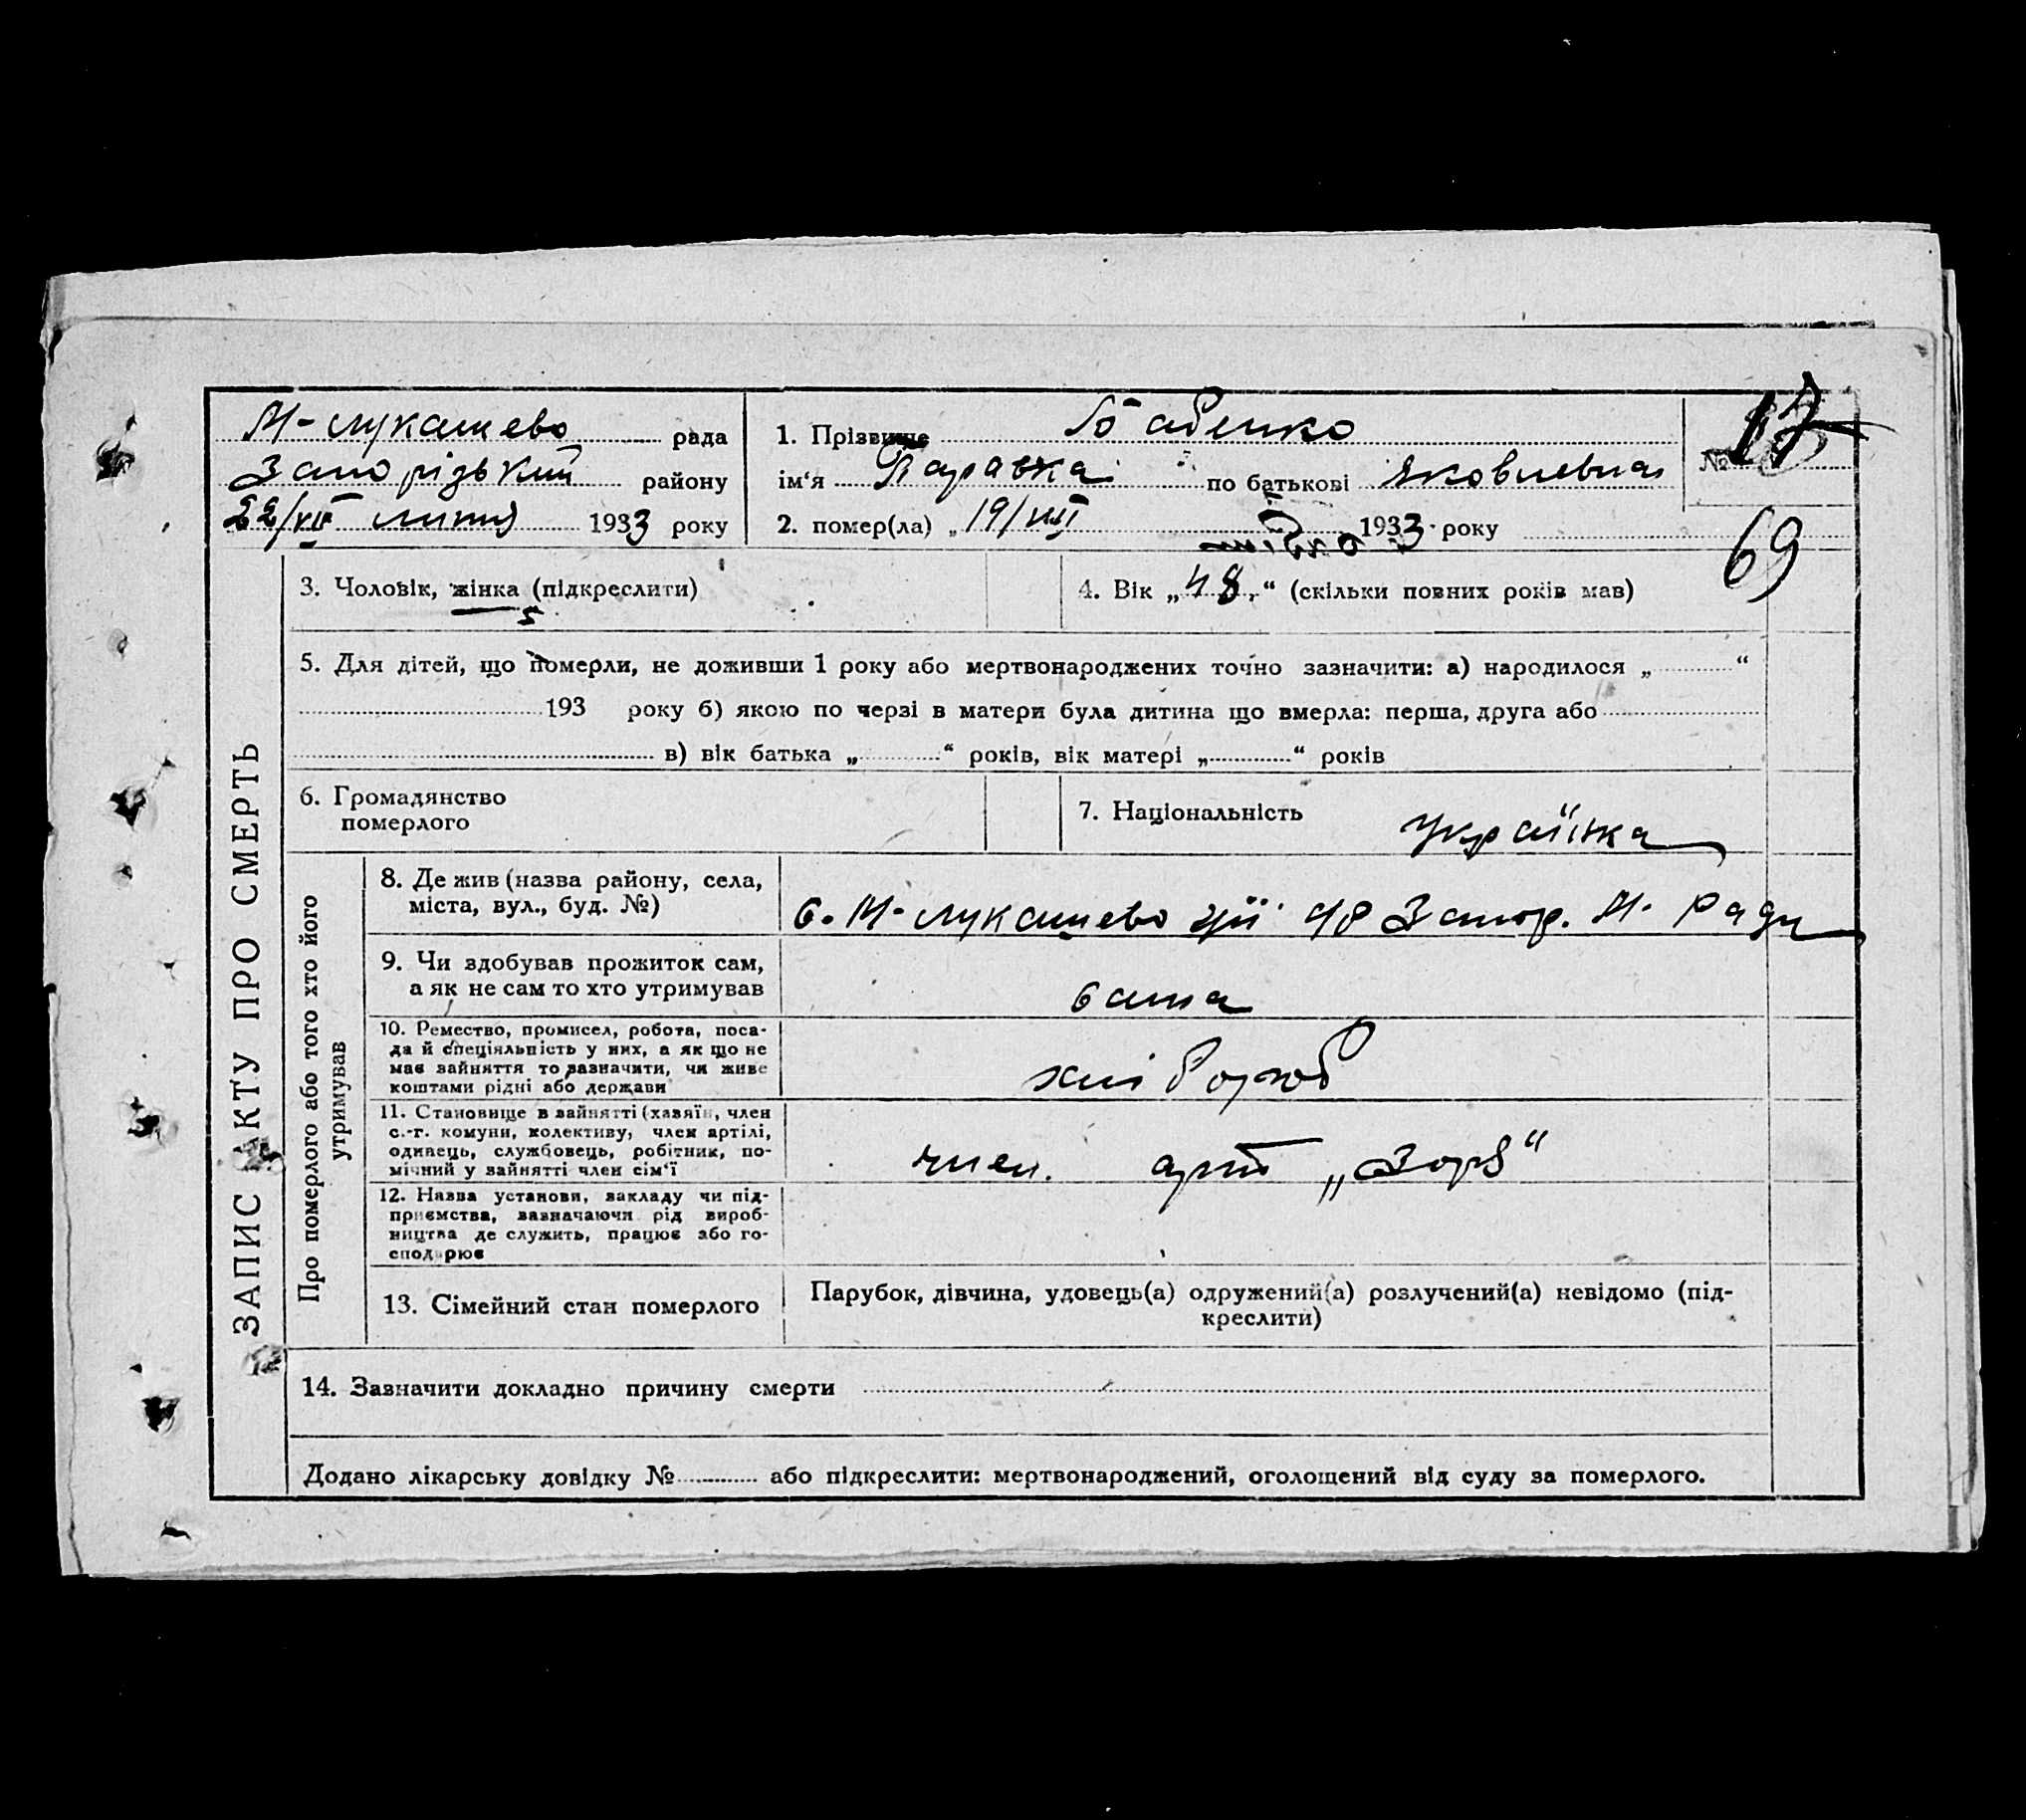 М-Лукашево рада
Запорізький району
22/VII липня 1933 року
1. Прізвище Бабенко
ім‘я Параска по батькові Яковлевна
2. помер(ла) „19/VIII 1933 року
№ 17
69
ЗАПИС АКТУ ПРО СМЕРТЬ
3. Чоловік, жінка (підкреслити)
4. Вік „48“ (скільки повних років мав)
5. Для дітей, що померли, не доживши 1 року або мертвонароджених точно зазначити: а) народилося „ “
193 року б) якою по черзі в матери була дитина що вмерла: перша, друга або
в) вік батька „ “ років, вік матері „ “ років
6. Громадянство
померлого
7. Національність Українка
Про померлого або того хто його
утримував
8. Де жив (назва району, села,
міста, вул., буд. №)
с. М-Лукашево Запор. М. Ради
9. Чи здобував прожиток сам,
а як не сам то хто утримував
сама
10. Ремество, промисел, робота, поса-
да й спеціяльність у них, а як що не
має зайняття то зазначити, чи живе
коштами рідні або держави
хлібороб
11. Становище в зайнятті (хазяїн, член
с.-г. комуни, колективу, член артілі,
одинець, службовець, робітник, по-
мічний у зайнятті член сім‘ї
член. арт „Зоря“
12. Назва установи, закладу чи під-
приємства, зазначаючи рід вироб-
ництва де служить, працює або го-
сподарює
13. Сімейний стан померлого
Парубок, дівчина, удовець(а) одружений(а) розлучений(а) невідомо (під-
креслити)
14. Зазначити докладно причину смерти
Додано лікарську довідку № або підкреслити: мертвонароджений, оголощений від суду за померлого.